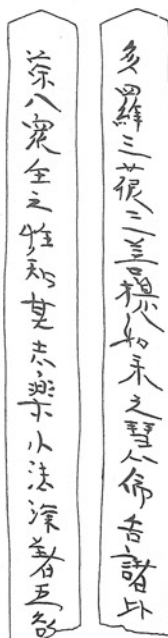 多羅三藐三菩提如来之慧佛告諸比
深入衆生之性知其志樂小法深著五欲